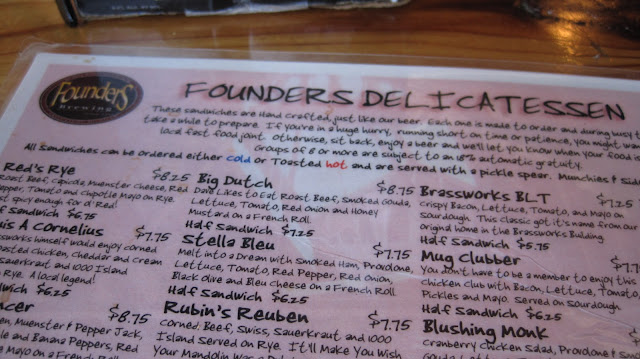 Founders
brewing
FOUNDERS DELICATESSEN
These sandwiches are Hand crafted, just like our beer. Each one is made to order and during busy t
take a while to prepare. If you're in a huge hurry, running short on time or patience, you might wa
local fast food joint. Otherwise, sit back, enjoy a beer and we'll let you know when your food
Groups of 8 or more are subject to an 18% automatic gratuity.
All Sandwiches can be ordered either cold or Toasted hot and are served with a pickle spear. Munchies & Sid
Red's Rye $8.25
Roast Beef, Capicola, Muenster cheese, Red
pper, Tomato and Chipotle Mayo on Rye.
st spicy enough for ol' Red!
f Sandwich $6.75
is A Cornelius $7.75
himself would enjoy corned
sted chicken, cheddar and cream
auerkraut and 1000 Island
Rye. A local legend!
wich $6.25
cer $8.75
en, Muenster & Pepper Jack,
le and Banana Peppers, Red
Mayo on a French Roll.
Big Dutch $8.75
Dave Likes to Eat Roast Beef, Smoked Gouda,
Lettuce, Tomato, Red Onion and Honey
Mustard on a French Roll.
Half Sandwich $7.25
Stella Bleu $7.75
Melt into a Dream with Smoked Ham, Provolone,
Lettuce, Tomato, Red Pepper, Red Onion,
Black Olive and Bleu Cheese on a French Roll.
Half Sandwich $6.25
Rubin's Reuben $7.75
Corned Beef, Swiss, Sauerkraut and 1000
Island Served on Rye. It'll Make You Wish
Your Mandolin Was a
Brassworks BLT $7.25
Crispy Bacon, Lettuce, Tomato, and Mayo on
Sourdough. This Classic got it's name from our
original home in the Brassworks Building.
Half Sandwich $5.75
Mug Clubber $7.
You don't have to be a member to enjoy this
chicken club with Bacon, Lettuce, Tomato
Pickles and Mayo. Served on Sourdough.
Half Sandwich $6.25
Blushing Monk
Cranberry Chicken Salad, Provolone, To